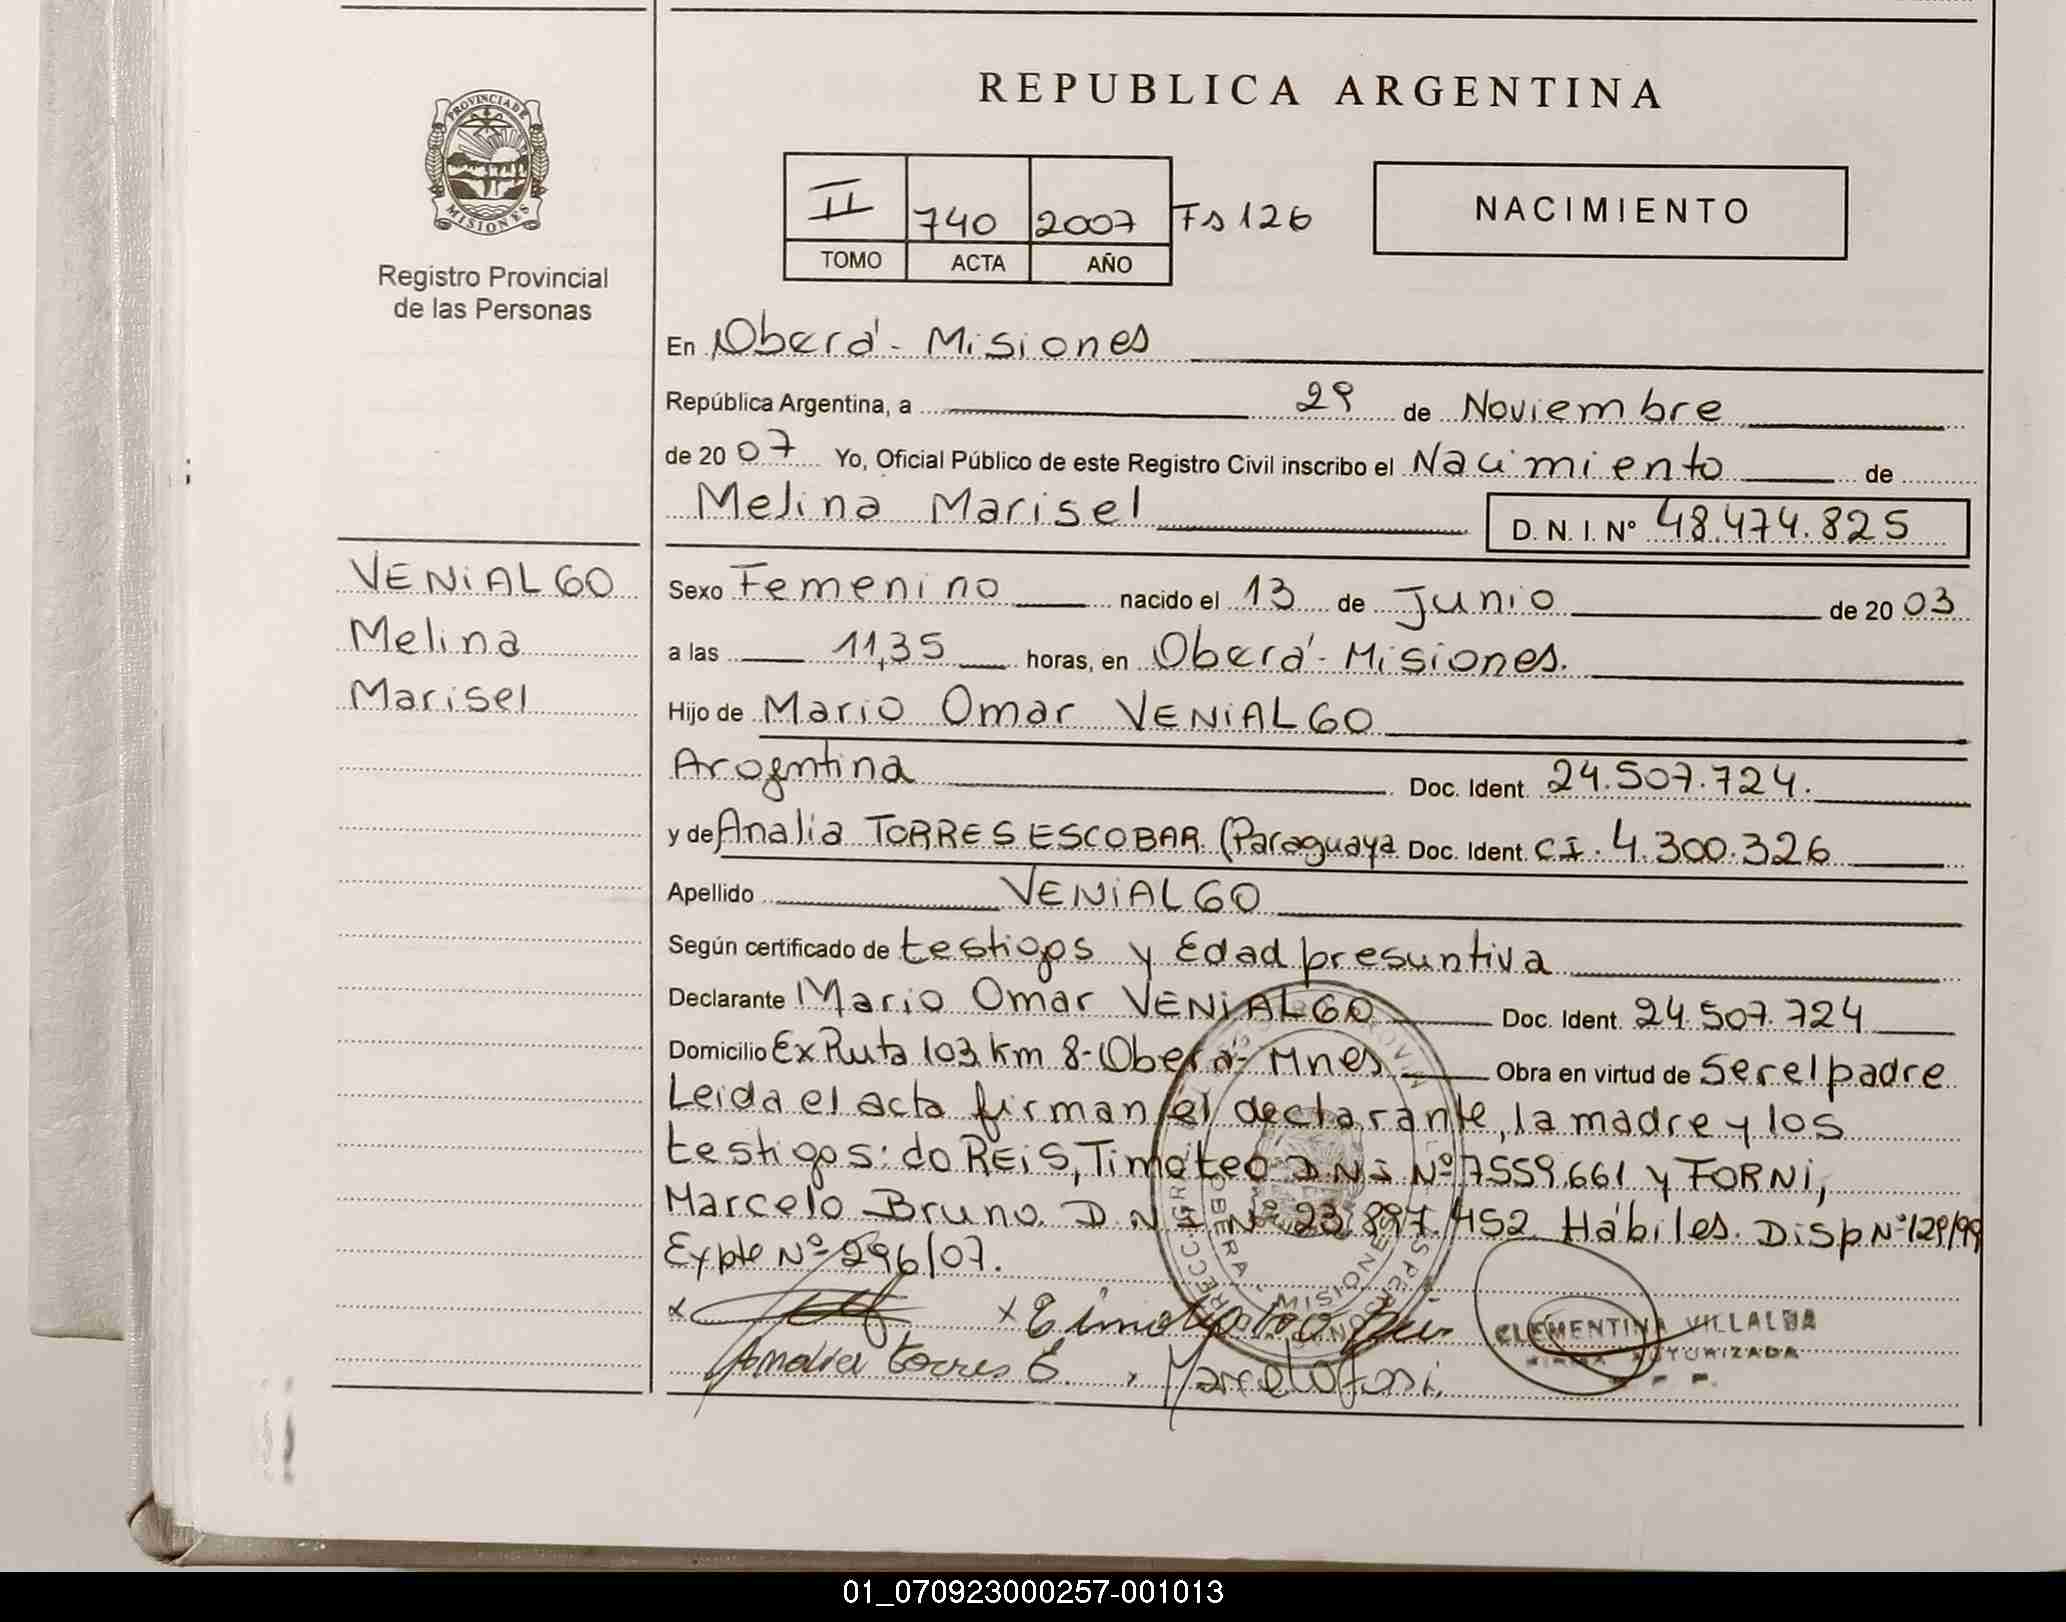 REPUBLICA ARGENTINA
PROVINCIA DE
MISIONES
Registro Provincial
de las Personas
II 740 2007 Fs 126
TOMO ACTA AÑO
NACIMIENTO
En Oberá - Misiones
República Argentina, a 29 de Noviembre
de 2007 Yo, Oficial Público de este Registro Civil inscribo el Nacimiento de
Melina Marisel D. N. I. Nº 48.474.825
VENIALGO
Melina
Marisel
Sexo Femenino nacido el 13 de Junio de 2003
a las 11,35 horas, en Oberá - Misiones.
Hijo de Mario Omar VENIALGO
Argentina Doc. Ident. 24.507.724.
y de Analia TORRES ESCOBAR (Paraguaya Doc. Ident. CI. 4.300.326
Apellido VENIALGO
Según certificado de testigos y Edad presuntiva
Declarante Mario Omar VENIALGO Doc. Ident. 24.507.724
Domicilio Ex Ruta 103 Km 8 - Oberá - Mnes Obra en virtud de Ser el padre
Leida el acta firman el declarante, la madre y los
testigos: do REIS, Timoteo D.N.I Nº 7559.661 y FORNI,
Marcelo Bruno. D.N.I. Nº 23.897.452. Hábiles. Disp Nº 129/99
Expte Nº 296/07.
OBERA - MISIONES
CLEMENTINA VILLALBA
FIRMA AUTORIZADA
Analia Torres E. Marcelo Forni.
01_070923000257-001013